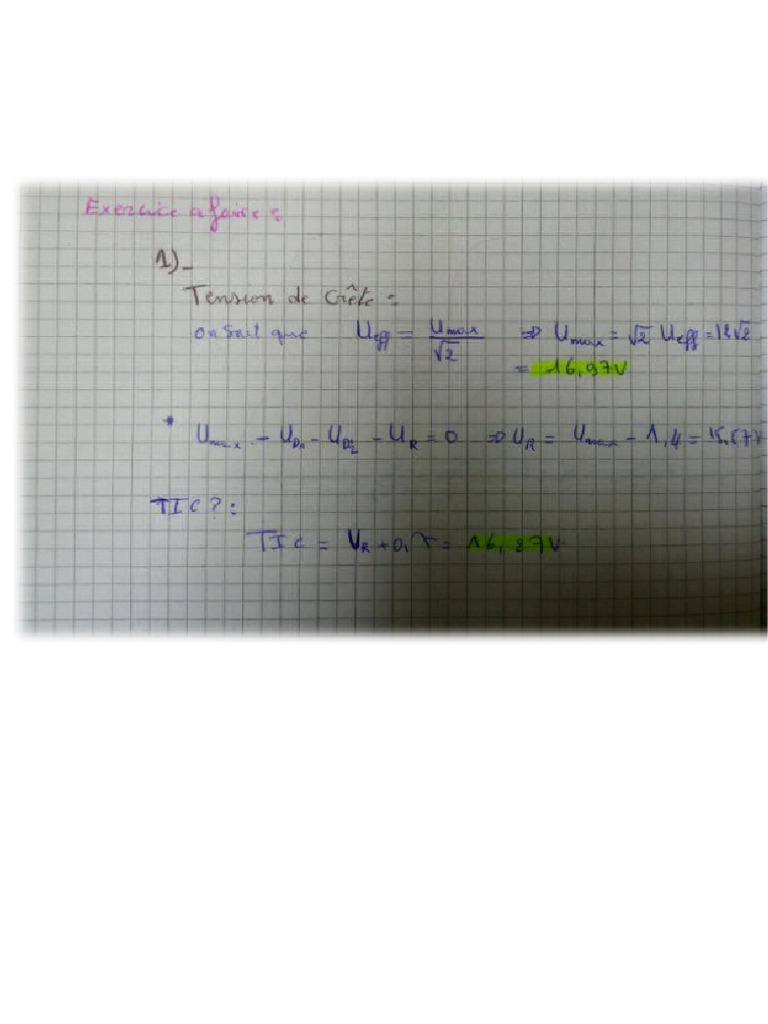 Exercice à faire :
1)_
Tension de crête :
on sait que Ueff = Umax / √2 => Umax = √2 Ueff = 12√2
= 16,97V
* Umax - UD1 - UD2 - UR = 0 => UR = Umax - 1,4 = 15,57V
TIC ? :
TIC = VR + 0,7 = 16,27V